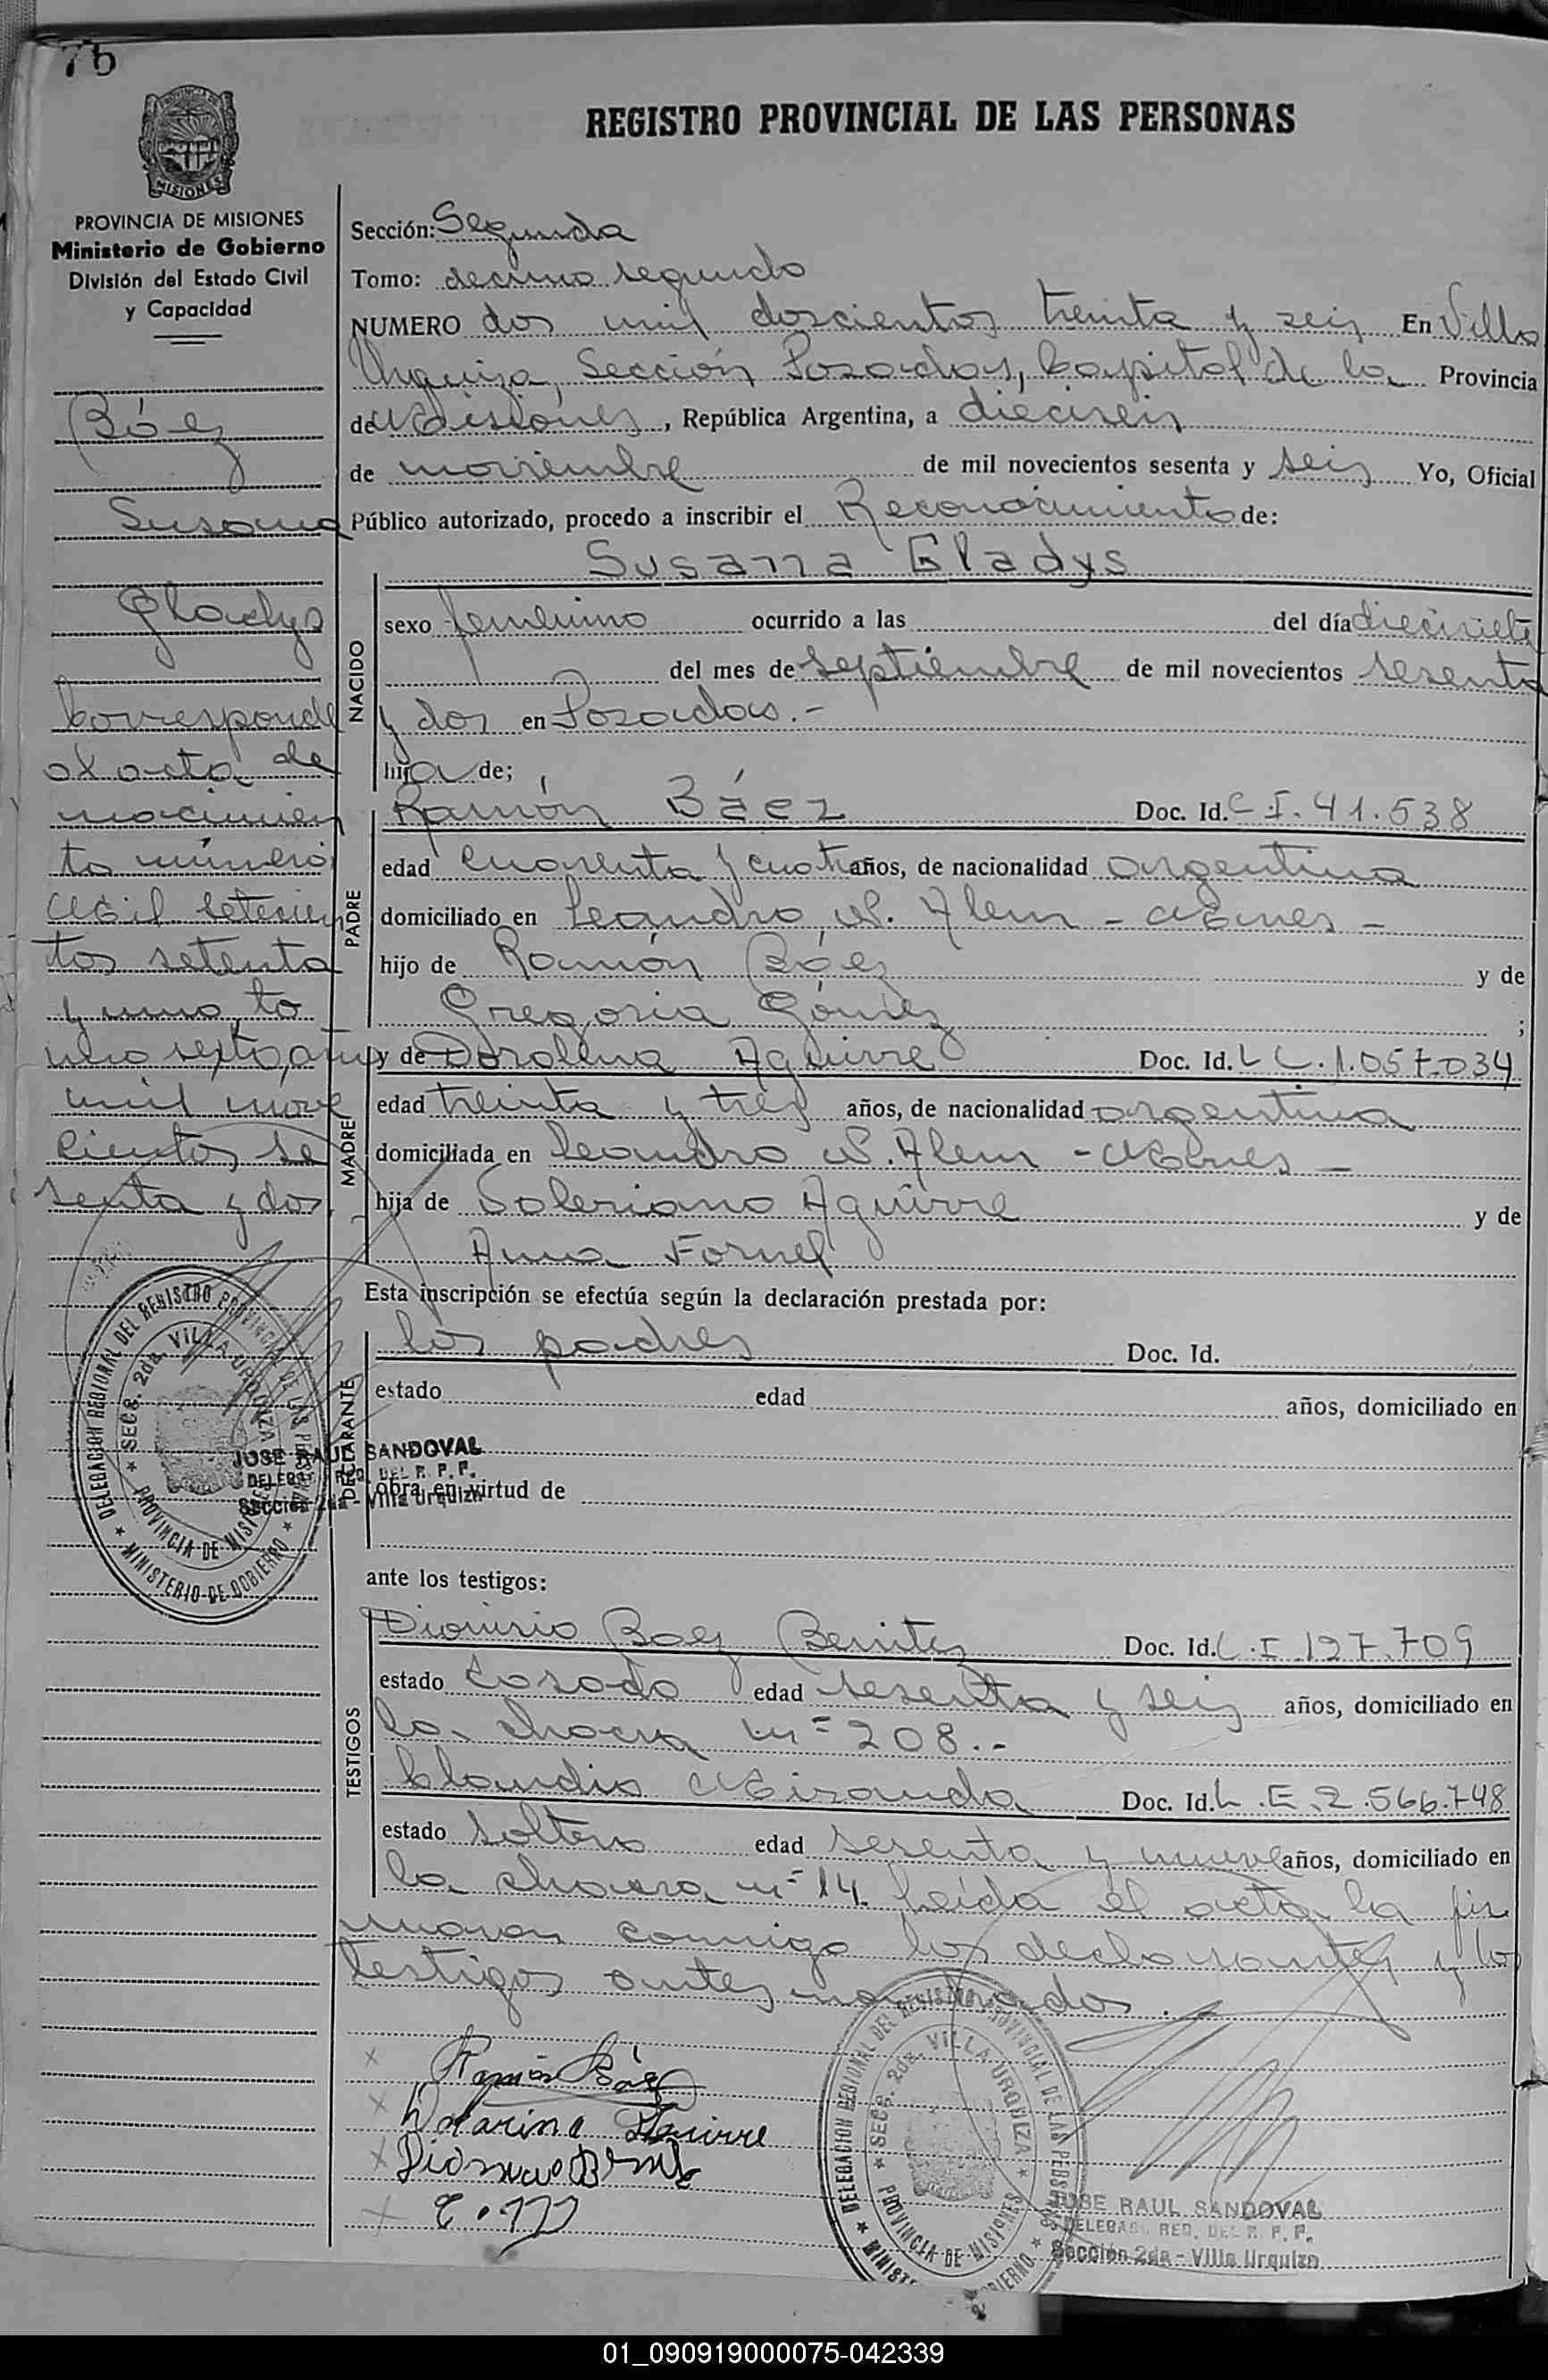 76
REGISTRO PROVINCIAL DE LAS PERSONAS
MISIONES
PROVINCIA DE MISIONES
Ministerio de Gobierno
División del Estado Civil
y Capacidad
Báez
Susana
Gladys
Corresponde
al acta de
nacimien
to número
Mil setecien
tos setenta
y uno, to
mo sexto, año
mil nove
cientos se
senta y dos.
Sección: Segunda
Tomo: decimo segundo
NUMERO dos mil doscientos treinta y seis En Villa
Urquiza, Sección Posadas, Capital de la Provincia
de Misiones, República Argentina, a dieciseis
de noviembre de mil novecientos sesenta y seis Yo, Oficial
Público autorizado, procedo a inscribir el Reconocimiento de:
Susana Gladys
NACIDO
sexo femenino ocurrido a las del día diecisiete
del mes de septiembre de mil novecientos sesenta
y dos en Posadas.-
hija de;
PADRE
Ramón Báez Doc. Id. C.I. 41.538
edad cuarenta y cuatro años, de nacionalidad argentina
domiciliado en Leandro N. Alem - Mnes -
hijo de Ramón Báez y de
Gregoria Gómez ;
MADRE
y de Aguirre Doc. Id. L C. 1.057.034
edad treinta y tres años, de nacionalidad argentina
domiciliada en Leandro N. Alem - Mnes -
hija de Soleriano Aguirre y de
Ana Fornel
Esta inscripción se efectúa según la declaración prestada por:
DECLARANTE
los padres Doc. Id.
estado edad años, domiciliado en
obra en virtud de
DELEGACION REGIONAL DEL REGISTRO PROVINCIAL DE LAS PERSONAS
SECC. 2da. VILLA URQUIZA
PROVINCIA DE MISIONES
MINISTERIO DE GOBIERNO
JOSE RAUL SANDOVAL
DELEGADO REG. DEL R. P. P.
Sección 2da - Villa Urquiza
ante los testigos:
TESTIGOS
Dionisio Baez Benitez Doc. Id. C.I. 127.709
estado casado edad sesenta y seis años, domiciliado en
la chacra nº 208.-
Claudio Miranda Doc. Id. L.E. 2.566.748
estado soltero edad sesenta y nueve años, domiciliado en
la chacra nº 14. Leída el acta, la fir
maron conmigo los declarantes y los
testigos antes nombrados.
x Ramón Báez
x Aguirre
x
x C. M
DELEGACION REGIONAL DEL REGISTRO PROVINCIAL DE LAS PERSONAS
SECC. 2da. VILLA URQUIZA
PROVINCIA DE MISIONES
JOSE RAUL SANDOVAL
DELEGADO REG. DEL R. P. P.
Sección 2da - Villa Urquiza
01_090919000075-042339